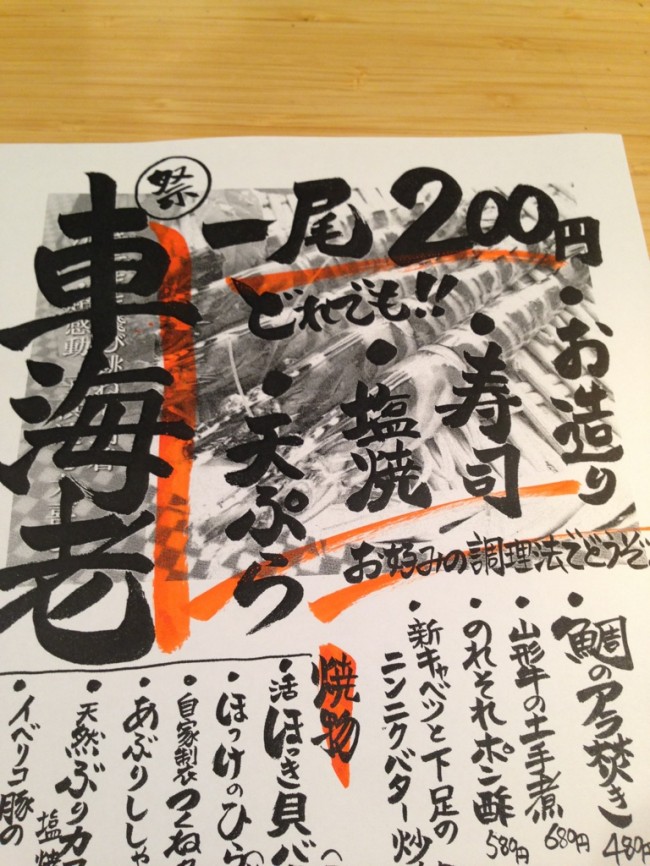 祭
車海老
一尾200円
どれでも!!
・お造り
・寿司
・塩焼
・天ぷら
お好みの調理法でどうぞ
・鯛のアラ焚き
480
・山形牛の土手煮
680円
・のれそれポン酢
580円
・新キャベツと下足の
ニンニクバター炒
焼物
・活ほっき貝バ
・ほっけのひら
・自家製つくね
・あぶりししゃ
・天然ぶりカマ
塩焼
・イベリコ豚の